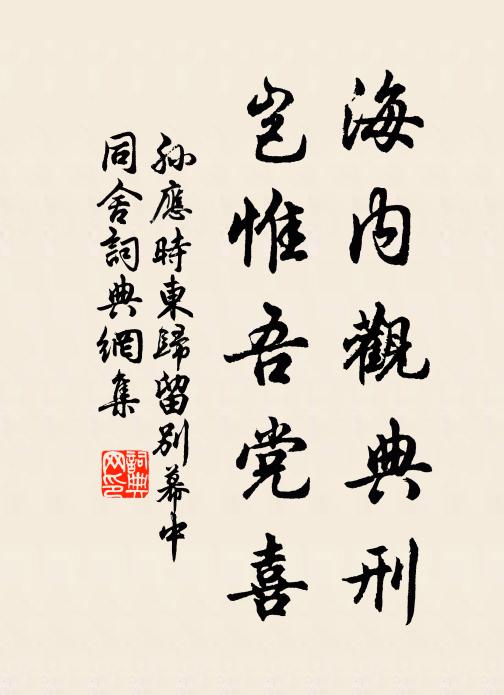 海内觀典刑
豈惟吾党喜
孫應時東歸留別幕中
同舍詞典網集
詞典網印